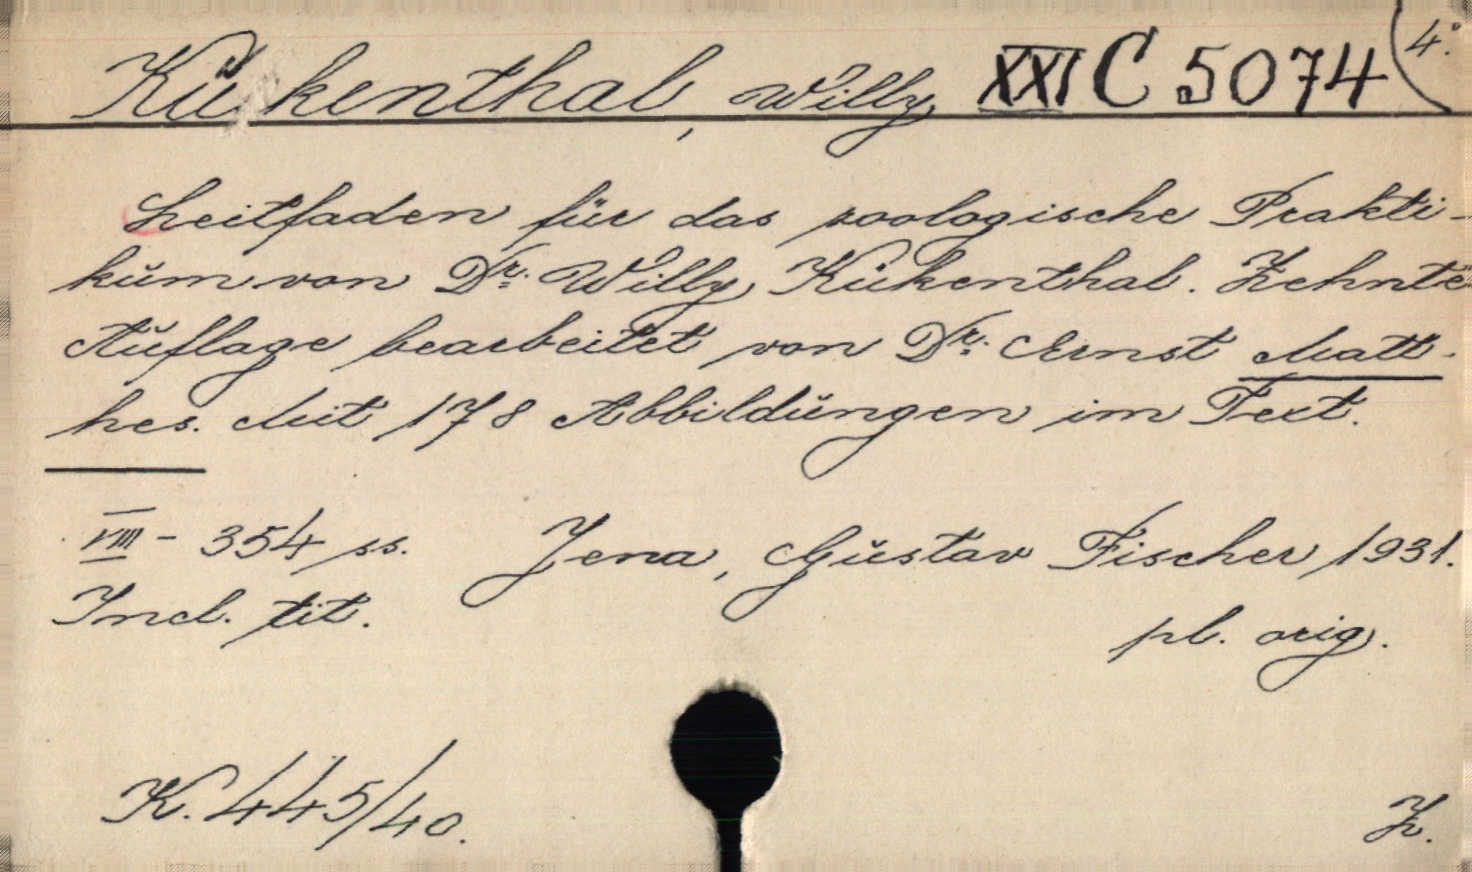 Kükenthal, Willy XXI C 5074 4°.
Leitfaden für das zoologische Prakti-
kum von Dr. Willy Kükenthal. Zehnte
Auflage bearbeitet von Dr. Ernst Matt-
hes. Mit 178 Abbildungen im Text.
VIII - 354 ss. Jena, Gustav Fischer 1931.
Incl. tit.
pl. orig.
K. 445/40.
Z.